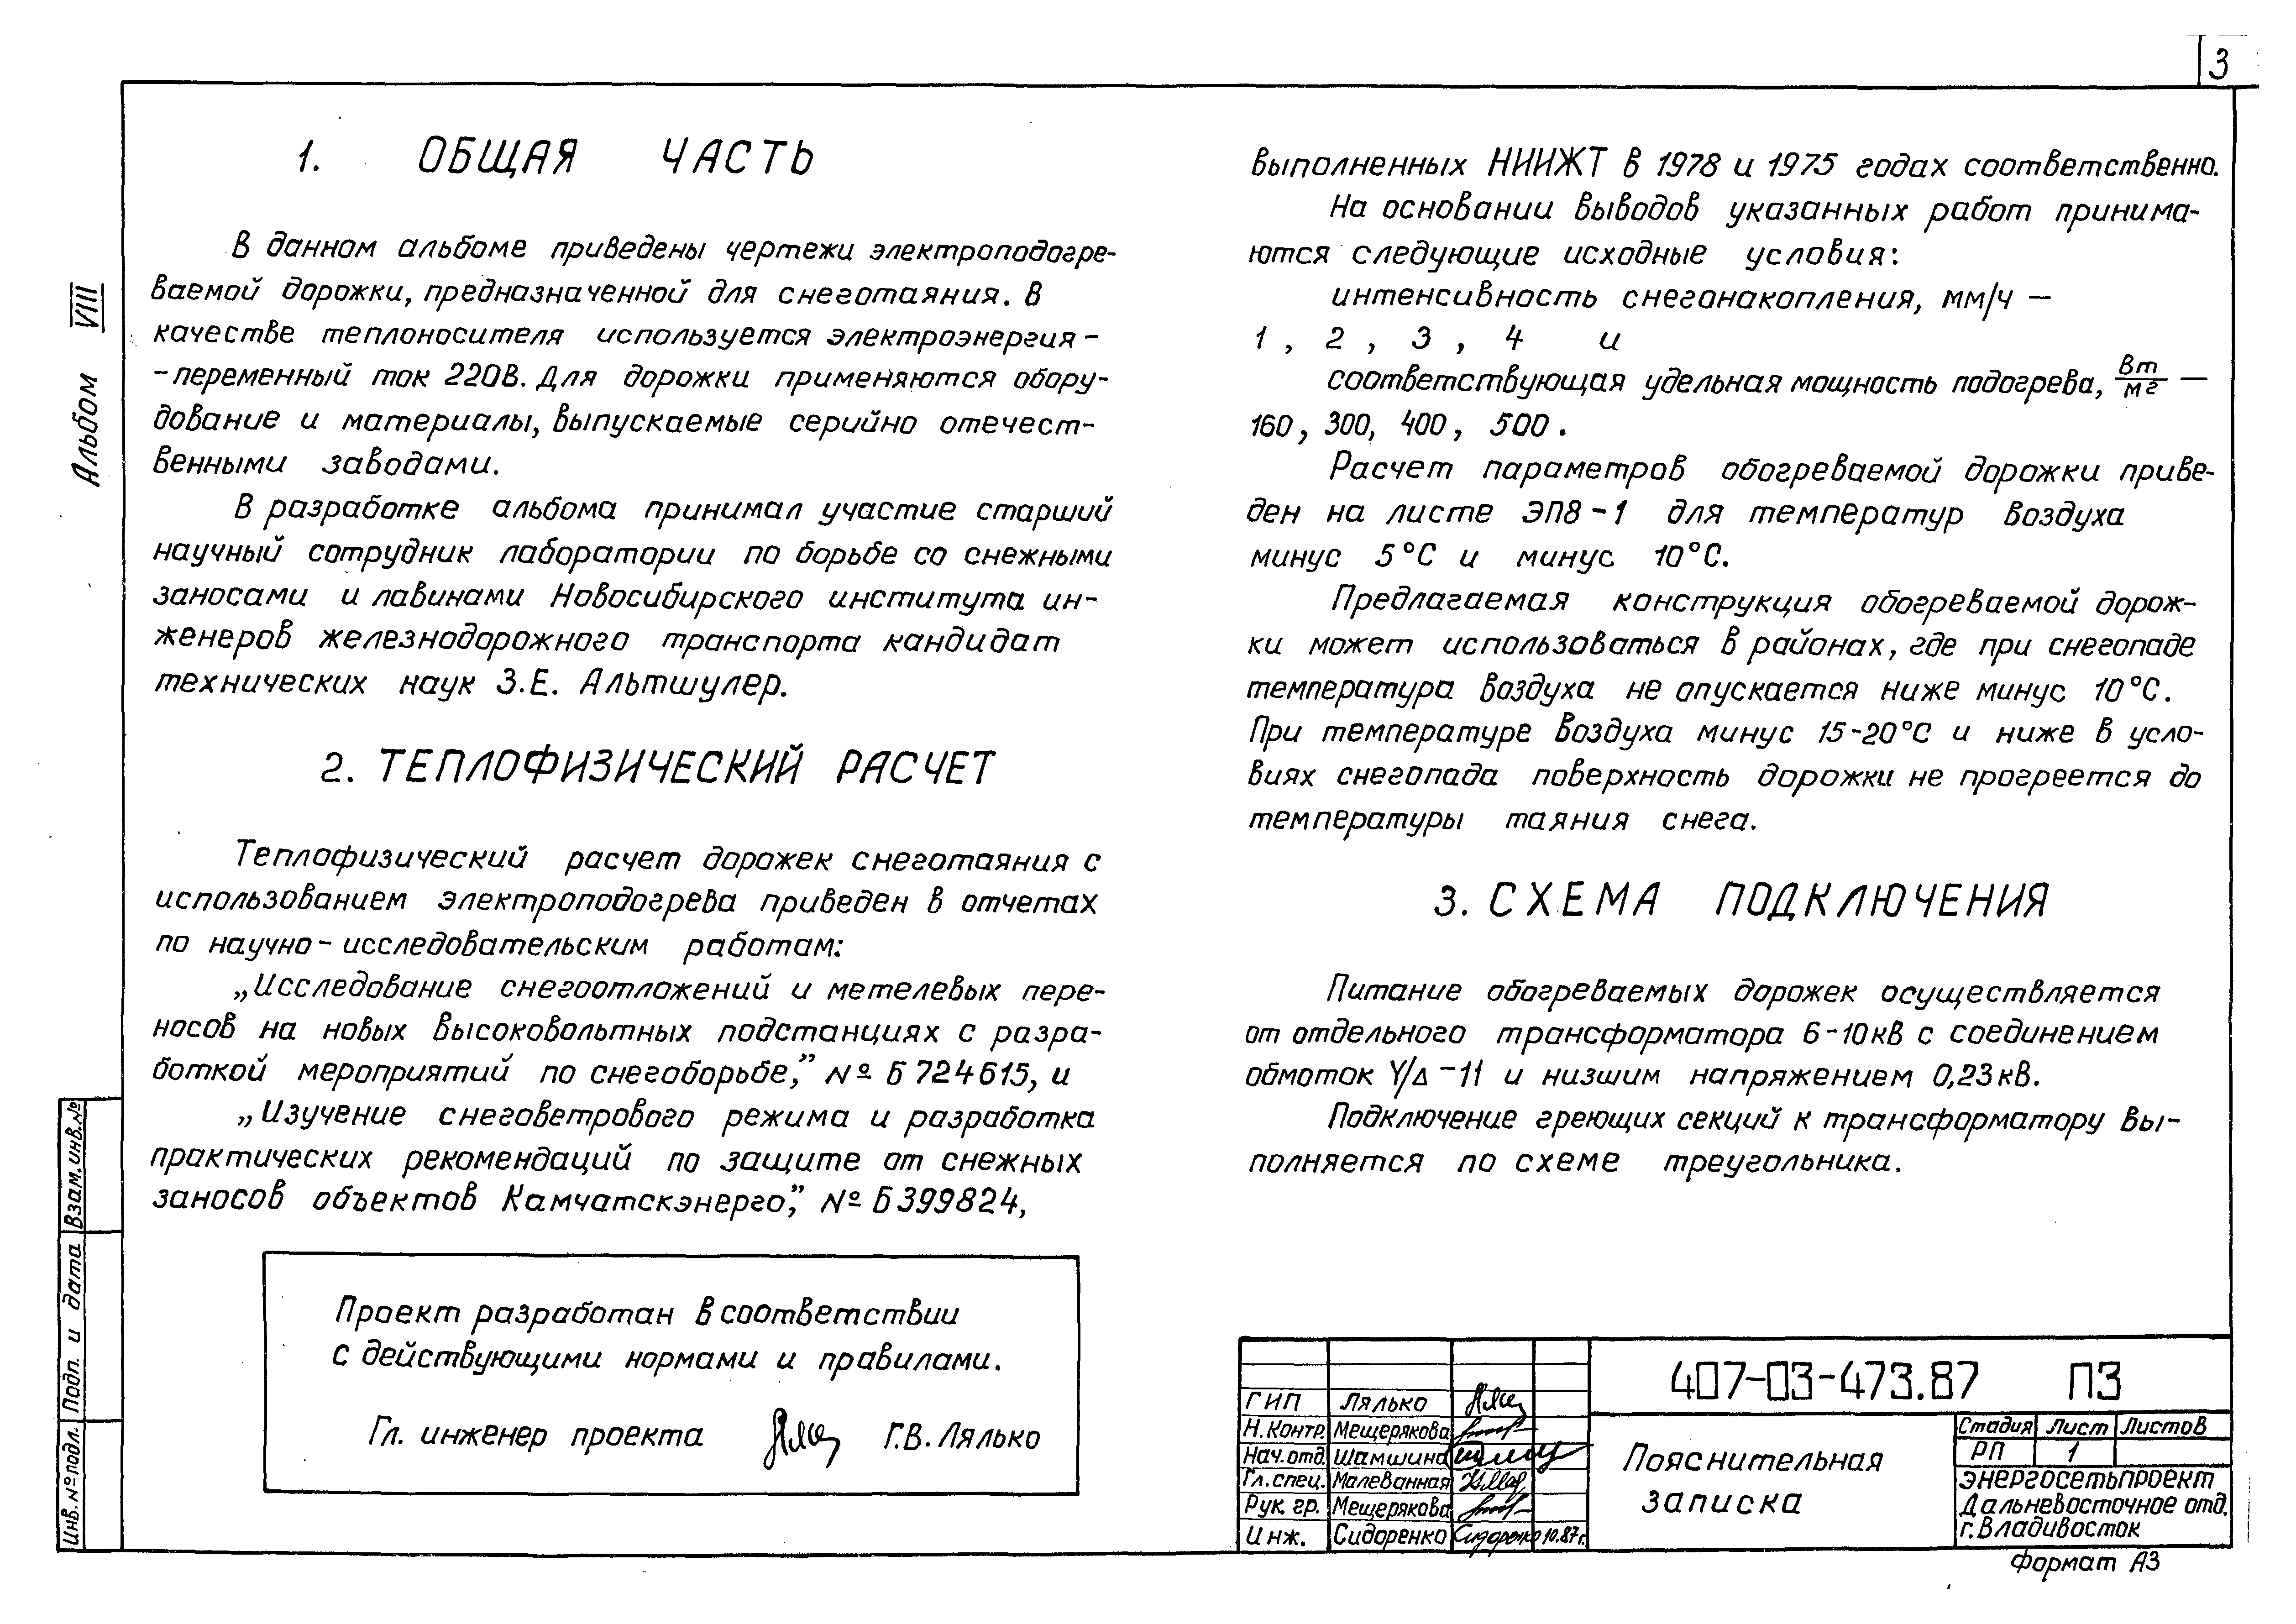 3
Альбом VIII
1. ОБЩАЯ ЧАСТЬ
В данном альбоме приведены чертежи электроподогре-
ваемой дорожки, предназначенной для снеготаяния. В
качестве теплоносителя используется электроэнергия -
- переменный ток 220В. Для дорожки применяются обору-
дование и материалы, выпускаемые серийно отечест-
венными заводами.
В разработке альбома принимал участие старший
научный сотрудник лаборатории по борьбе со снежными
заносами и лавинами Новосибирского института ин-
женеров железнодорожного транспорта кандидат
технических наук З.Е. Альтшулер.
2. ТЕПЛОФИЗИЧЕСКИЙ РАСЧЕТ
Теплофизический расчет дорожек снеготаяния с
использованием электроподогрева приведен в отчетах
по научно-исследовательским работам:
„Исследование снегоотложений и метелевых пере-
носов на новых высоковольтных подстанциях с разра-
боткой мероприятий по снегоборьбе," № Б 724615, и
„Изучение снеговетрового режима и разработка
практических рекомендаций по защите от снежных
заносов объектов Камчатскэнерго," № Б 399824,
Проект разработан в соответствии
с действующими нормами и правилами.
Гл. инженер проекта Г.В. Лялько
выполненных НИИЖТ в 1978 и 1975 годах соответственно.
На основании выводов указанных работ принима-
ются следующие исходные условия:
интенсивность снегонакопления, мм/ч —
1, 2, 3, 4 и
соответствующая удельная мощность подогрева, Вт/м2 —
160, 300, 400, 500.
Расчет параметров обогреваемой дорожки приве-
ден на листе ЭП8-1 для температур воздуха
минус 5°С и минус 10°С.
Предлагаемая конструкция обогреваемой дорож-
ки может использоваться в районах, где при снегопаде
температура воздуха не опускается ниже минус 10°С.
При температуре воздуха минус 15-20°С и ниже в усло-
виях снегопада поверхность дорожки не прогреется до
температуры таяния снега.
3. СХЕМА ПОДКЛЮЧЕНИЯ
Питание обогреваемых дорожек осуществляется
от отдельного трансформатора 6-10кВ с соединением
обмоток Y/Δ-11 и низшим напряжением 0,23кВ.
Подключение греющих секций к трансформатору вы-
полняется по схеме треугольника.
Инв. № подл. Подп. и дата Взам. инв. №
407-03-473.87 ПЗ
ГИП Лялько
Н. контр. Мещерякова
Нач. отд. Шамшина
Гл. спец. Малеванная
Рук. гр. Мещерякова
Инж. Сидоренко Сидоренко 10.87г.
Пояснительная
записка
Стадия Лист Листов
РП 1
ЭНЕРГОСЕТЬПРОЕКТ
Дальневосточное отд.
г. Владивосток
Формат А3